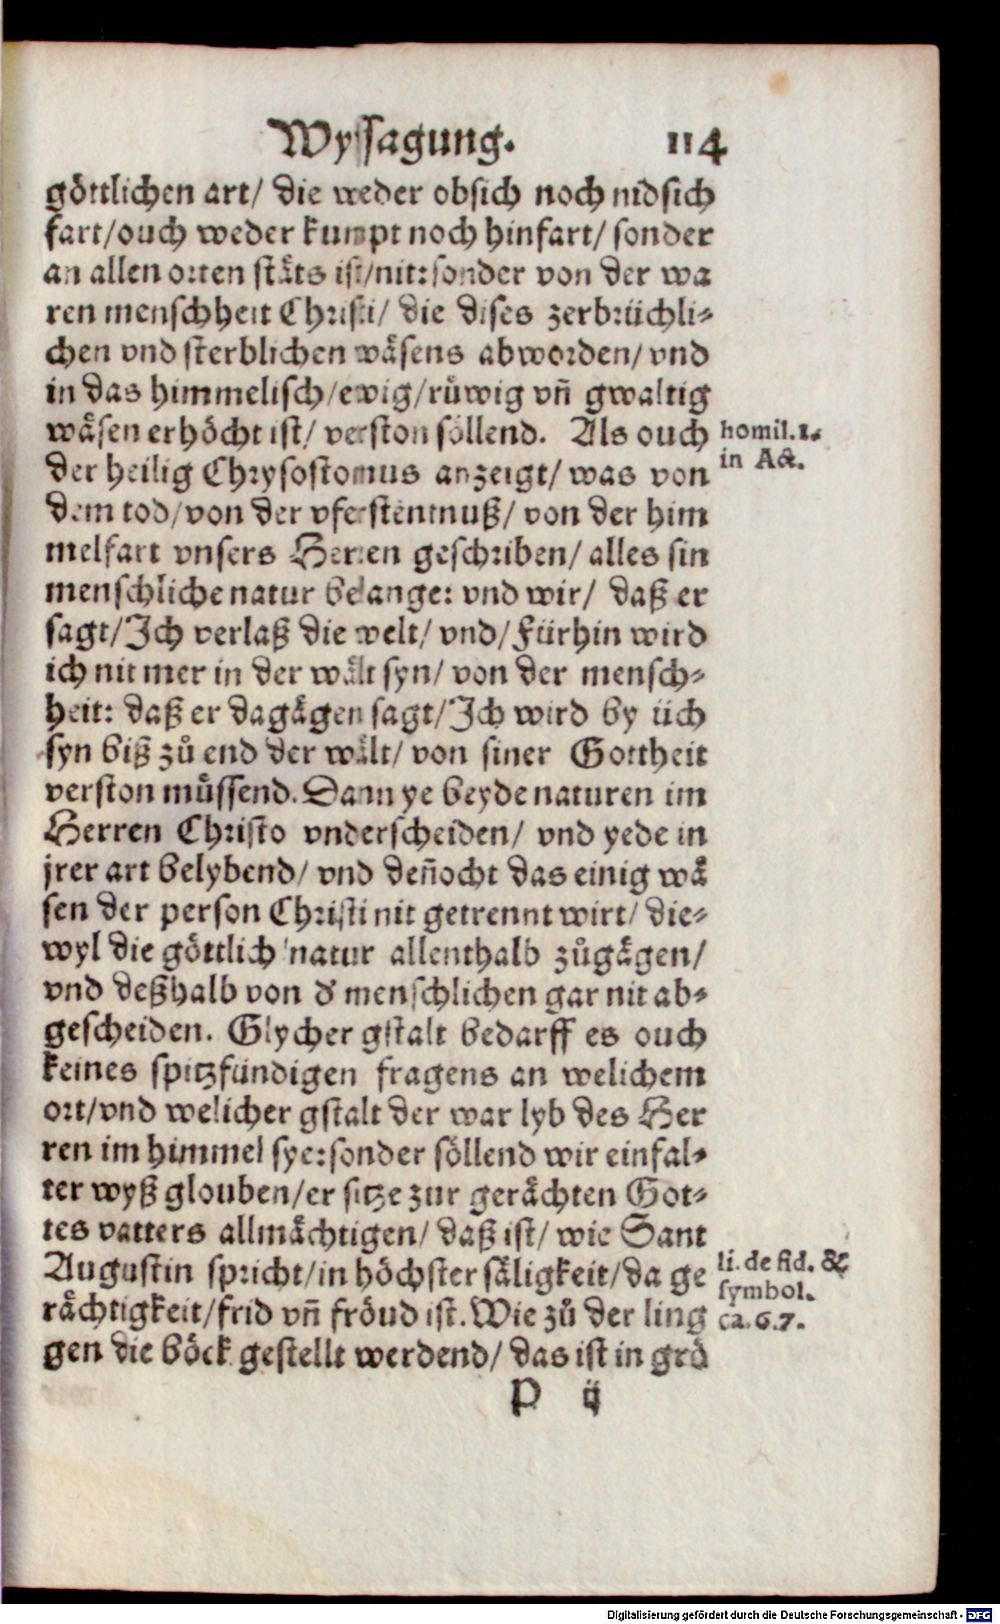 Wyssagung. 114
göttlichen art/ die weder obsich noch nidsich
fart/ouch weder kumpt noch hinfart/ sonder
an allen orten stäts ist/nit: sonder von der wa
ren menschheit Christi/ die dises zerbrüchli-
chen vnd sterblichen wäsens abworden/ vnd
in das himmelisch/ewig/rüwig vñ gwaltig
wäsen erhöcht ist/ verston söllend. Als ouch
homil. 1.
in Act.
der heilig Chrysostomus anzeigt/ was von
dem tod/von der vferstentnuß/ von der him
melfart vnsers Herren geschriben/ alles sin
menschliche natur belange: vnd wir/ daß er
sagt/Ich verlaß die welt/ vnd/ Fürhin wird
ich nit mer in der wält syn/ von der mensch-
heit: daß er dagägen sagt/Ich wird by üch
syn biß zů end der wält/ von siner Gottheit
verston müssend. Dann ye beyde naturen im
Herren Christo vnderscheiden/ vnd yede in
jrer art belybend/ vnd deñocht das einig wä
sen der person Christi nit getrennt wirt/ die-
wyl die göttlich natur allenthalb zůgägen/
vnd deßhalb von d' menschlichen gar nit ab-
gescheiden. Glycher gstalt bedarff es ouch
keines spitzfündigen fragens an welichem
ort/vnd welicher gstalt der war lyb des Her
ren im himmel sye: sonder söllend wir einfal-
ter wyß glouben/er sitze zur gerächten Got-
tes vatters allmächtigen/ daß ist/ wie Sant
Augustin spricht/in höchster säligkeit/da ge
li. de fid. &
symbol.
ca. 6. 7.
rächtigkeit/frid vñ fröud ist. Wie zů der ling
gen die böck gestellt werdend/ das ist in grö
P ij
Digitalisierung gefördert durch die Deutsche Forschungsgemeinschaft - DFG